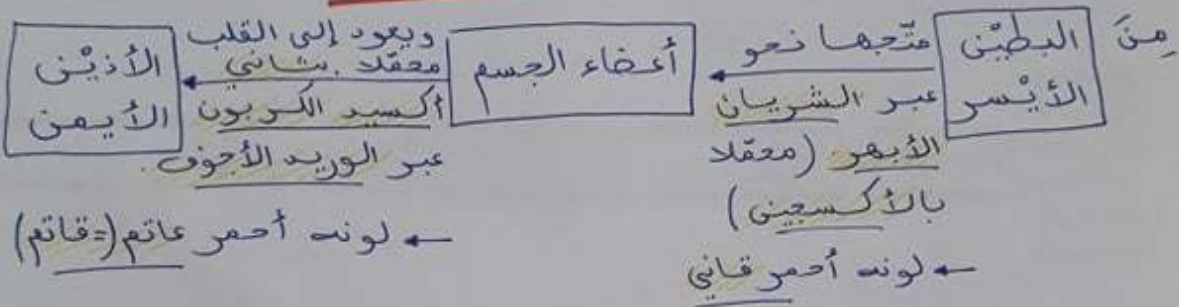 مِنَ
البطيْن
الأيْسر
متّجها نحو
عبر الشريان
الأبهر (محمّلا
بالأكسجين)
← لونه أحمر قاني
أعضاء الجسم
ويعود إلى القلب
محمّلا بثاني
أكسيد الكربون
عبر الوريد الأجوف.
← لونه أحمر عاتم (=قاتم)
الأذيْن
الأيمن